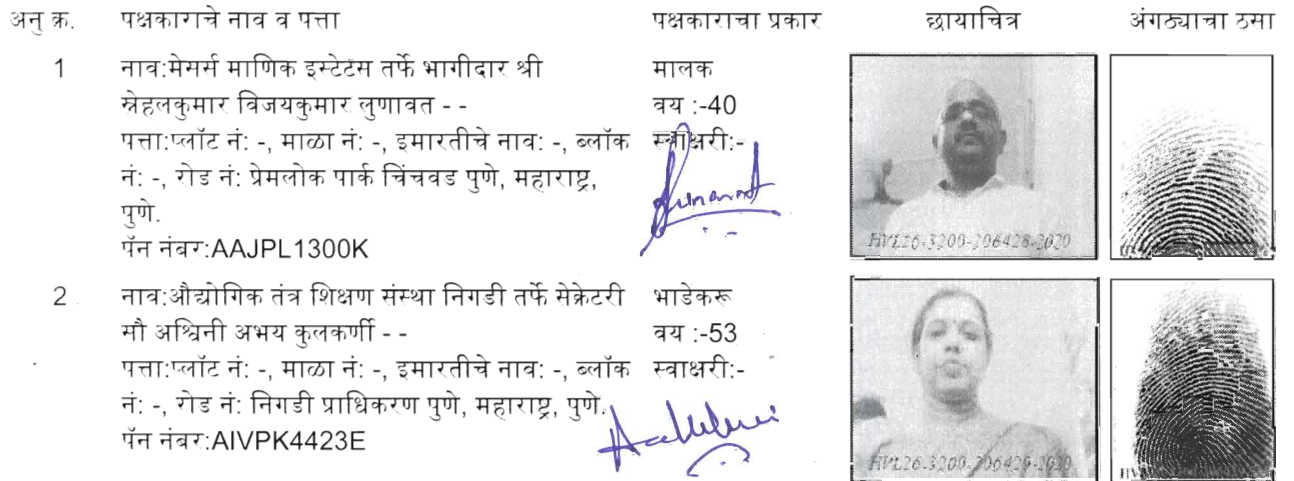 अनु क्र. पक्षकाराचे नाव व पत्ता पक्षकाराचा प्रकार छायाचित्र अंगठ्याचा ठसा
1 नाव:मेसर्स माणिक इस्टेटस तर्फे भागीदार श्री मालक
स्नेहलकुमार विजयकुमार लुणावत - - वय :-40
पत्ता:प्लॉट नं: -, माळा नं: -, इमारतीचे नाव: -, ब्लॉक स्वाक्षरी:-
नं: -, रोड नं: प्रेमलोक पार्क चिंचवड पुणे, महाराष्ट्र,
पुणे.
पॅन नंबर:AAJPL1300K
HVL26-3200-206428-2020
2 नाव:औद्योगिक तंत्र शिक्षण संस्था निगडी तर्फे सेक्रेटरी भाडेकरू
सौ अश्विनी अभय कुलकर्णी - - वय :-53
पत्ता:प्लॉट नं: -, माळा नं: -, इमारतीचे नाव: -, ब्लॉक स्वाक्षरी:-
नं: -, रोड नं: निगडी प्राधिकरण पुणे, महाराष्ट्र, पुणे.
पॅन नंबर:AIVPK4423E
HVL26-3200-206429-2020